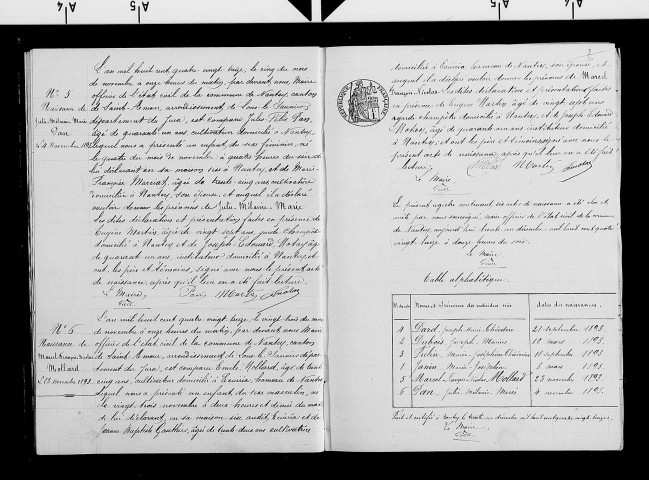 L'an mil huit cent quatre-vingt treize, le cinq du mois
de novembre à onze heures du matin, par devant nous, Maire
officier de l'état civil de la commune de Nantey, canton
de Saint-Amour, arrondissement de Lons-le-Saunier
département du Jura, est comparu Jules Félix Pan,
âgé de quarante un ans cultivateur domicilié à Nantey,
lequel nous a présenté un enfant du sexe féminin, né
le quatre du mois de novembre à quatre heures du soir de
lui déclarant en sa maison sise à Nantey, et de Marie
Françoise Marciat, âgée de trente cinq ans cultivatrice
domiciliée à Nantey, son épouse, et auquel il a déclaré
vouloir donner les prénoms de Julie Mélanie Marie
Les dites déclaration et présentation faites en présence de
Eugène Marty, âgé de vingt sept ans, garde champêtre
domicilié à Nantey et de Joseph Edouard Notaz âgé
de quarante un ans, instituteur domicilié à Nantey et
ont, les père et témoins, signé avec nous le présent acte
de naissance, après qu'il leur en a été fait lecture.
Le Maire, Pan Marty
N° 5
Naissance de
Julie Mélanie Marie
Pan
Le 4 Novembre 1893
N° 6
Naissance de
Marcel François Nicolas
Mollard
Le 23 novembre 1893
L'an mil huit cent quatre-vingt treize, le vingt trois du mois
de novembre à onze heures du matin, par devant nous Maire
officier de l'état civil de la commune de Nantey, canton
de Saint-Amour, arrondissement de Lons-le-Saunier dépar
tement du Jura, est comparu Emile Mollard, âgé de trente
cinq ans, cultivateur domicilié à hameau de Nantey
lequel nous a présenté un enfant du sexe masculin, né
le vingt trois novembre à deux heures et demie du matin
de lui déclarant, en sa maison sise audit et de
Jeanne Baptiste Gauthier, âgée de trente deux ans cultivatrice
domiciliée à hameau de Nantey, son épouse, et
auquel il a déclaré vouloir donner les prénoms de Marcel
François Nicolas Les dites déclaration et présentation faites
en présence de Eugène Marty, âgé de vingt sept ans
garde champêtre domicilié à Nantey, et de Joseph Edouard
Notaz, âgé de quarante un ans instituteur domicilié
à Nantey, et ont les père et témoins signé avec nous le
présent acte de naissance, après qu'il leur en a été fait
lecture. Marty
Le Maire
RÉPUBLIQUE FRANÇAISE
Le présent registre contenant six actes de naissance a été clos et
arrêté par nous soussigné, maire officier de l'état civil de la commune
de Nantey, aujourd'hui trente un décembre mil huit cent quatre
vingt treize à douze heures du soir.
Le Maire
Table alphabétique.
Noms et Prénoms des individus nés dates des naissances.
4 Dard Joseph Théodore 21 septembre 1893.
2 Dubois Joseph 10 mars 1893.
3 Marie Joséphine 11 septembre 1893
1 Janin Marie Joséphine 8 mars 1893
5 Marcel François Nicolas Mollard 23 novembre 1893
6 Pan Julie Mélanie Marie 4 novembre 1893.
Fait et certifié à Nantey le trente un décembre mil huit cent quatre vingt treize.
Le Maire
A4
A5
A5
A4